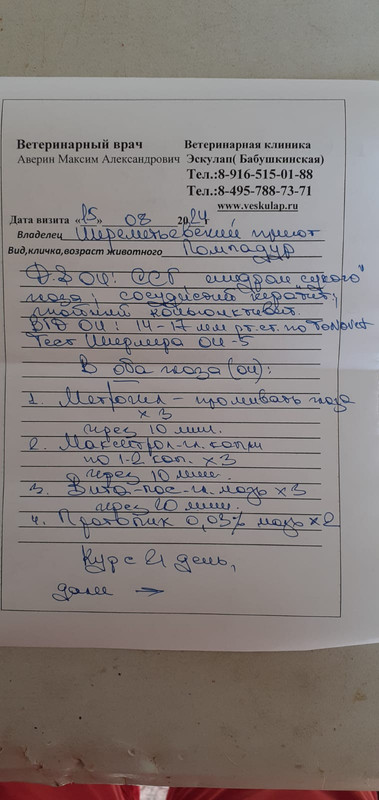 Ветеринарный врач Ветеринарная клиника
Аверин Максим Александрович Эскулап( Бабушкинская)
Тел.:8-916-515-01-88
Тел.:8-495-788-73-71
www.veskulap.ru
Дата визита «15» 08 2024г
Владелец Шереметьевский приют
Вид,кличка,возраст животного Помпадур
D.S OU: ССГ синдром "сухого
глаза", сосудистый кератит;
гнойный конъюнктивит.
ВГД OU: 14-17 мм рт.ст. по TonoVet
Тест Ширмера OU-5
В оба глаза (OU):
1. Метрогил - промывать глаза
х 3
через 10 мин.
2. Макситрол-гл. капли
по 1-2 кап. х3
через 10 мин.
3. Вита-пос-гл. мазь х3
через 20 мин.
4. Протопик 0,03% мазь х2
Курс 21 день,
далее →